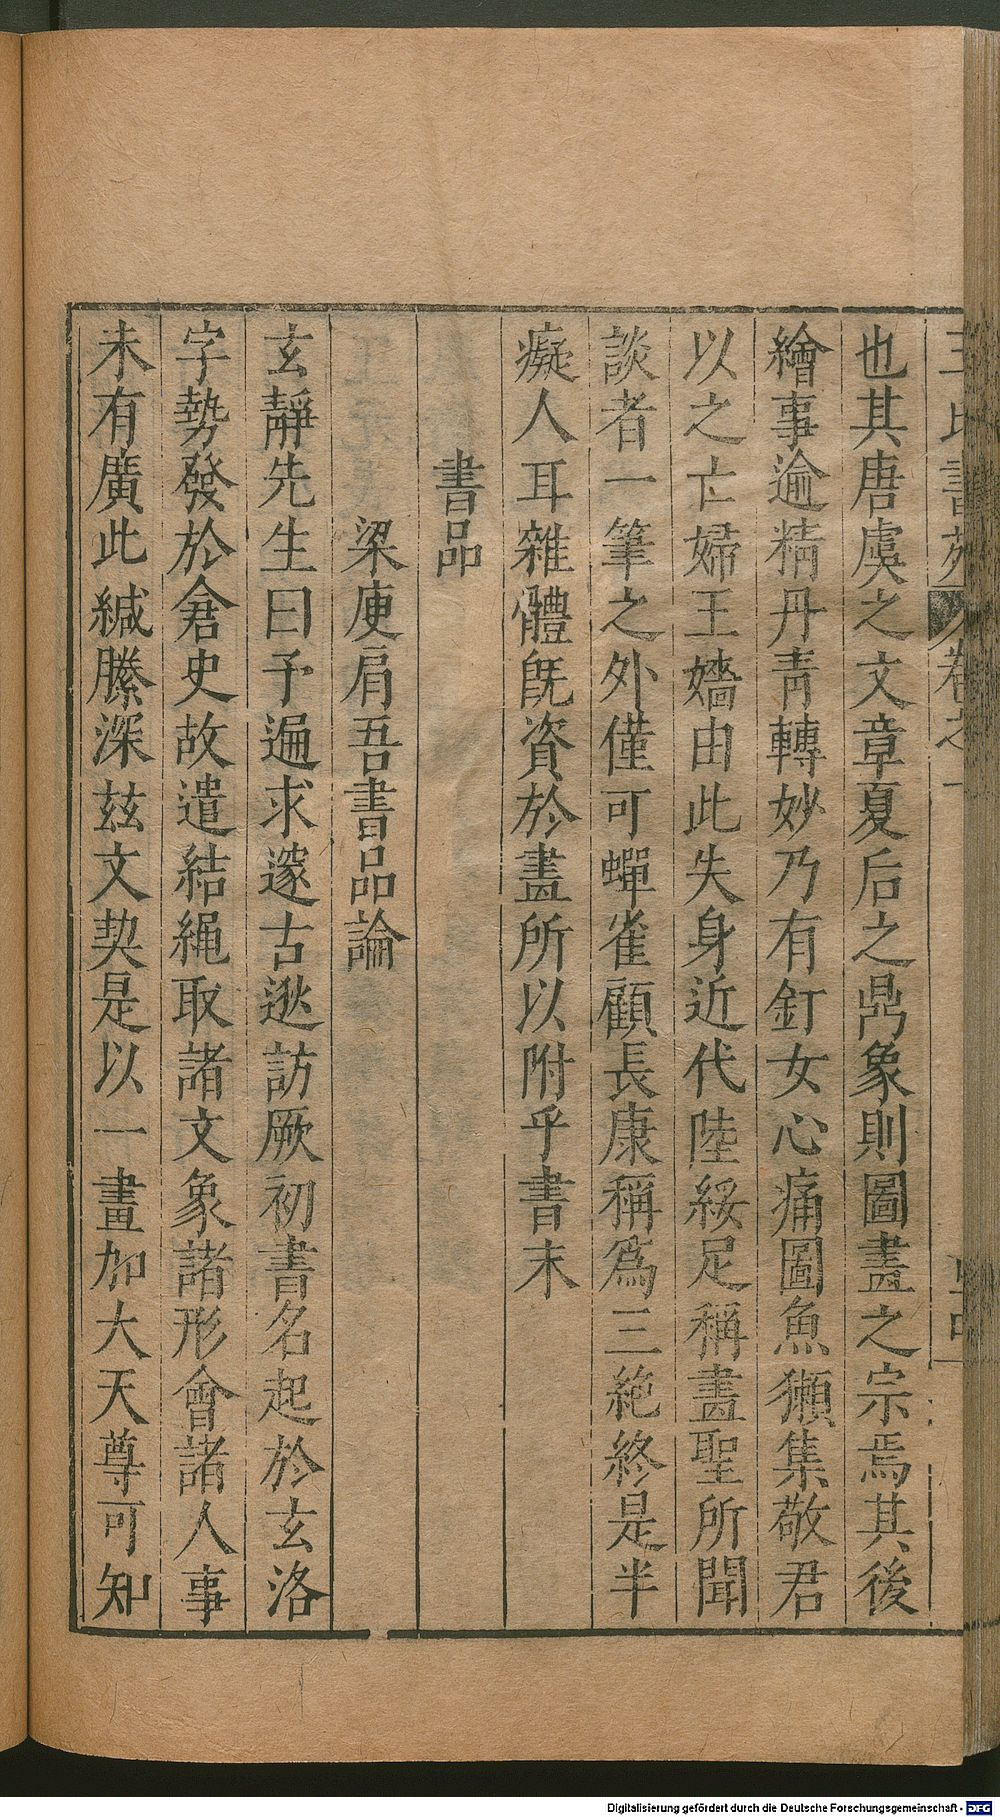 王氏書苑 卷之一
也其唐虞之文章夏后之鼎象則圖畫之宗焉其後
繪事逾精丹靑轉妙乃有釘女心痛圖魚獺集敬君
以之亡婦王嬙由此失身近代陸綏足稱畫聖所聞
談者一筆之外僅可蟬雀顧長康稱爲三絶終是半
癡人耳雜體旣資於畫所以附乎書末
書品
梁庾肩吾書品論
玄靜先生曰予遍求邃古逖訪厥初書名起於玄洛
字勢發於倉史故遣結繩取諸文象諸形會諸人事
未有廣此緘縢深兹文契是以一畫加大天尊可知
Digitalisierung gefördert durch die Deutsche Forschungsgemeinschaft - DFG